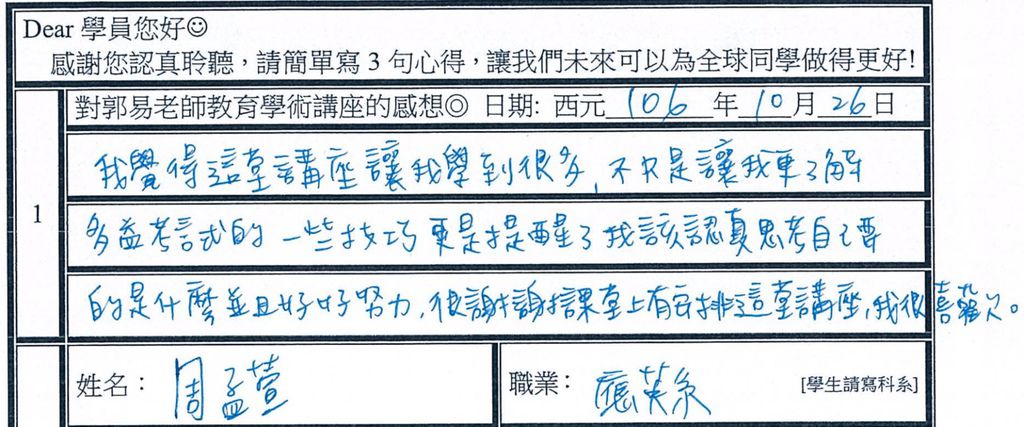 Dear 學員您好☺
感謝您認真聆聽，請簡單寫 3 句心得，讓我們未來可以為全球同學做得更好!
對郭易老師教育學術講座的感想◎ 日期: 西元 106 年 10 月 26 日
1
我覺得這堂講座讓我學到很多，不只是讓我更了解
多益考試的一些技巧更是提醒了我該認真思考自己要
的是什麼並且好好努力，很謝謝課堂上有安排這堂講座，我很喜歡。
姓名： 周孟萱
職業： 應英系 [學生請寫科系]